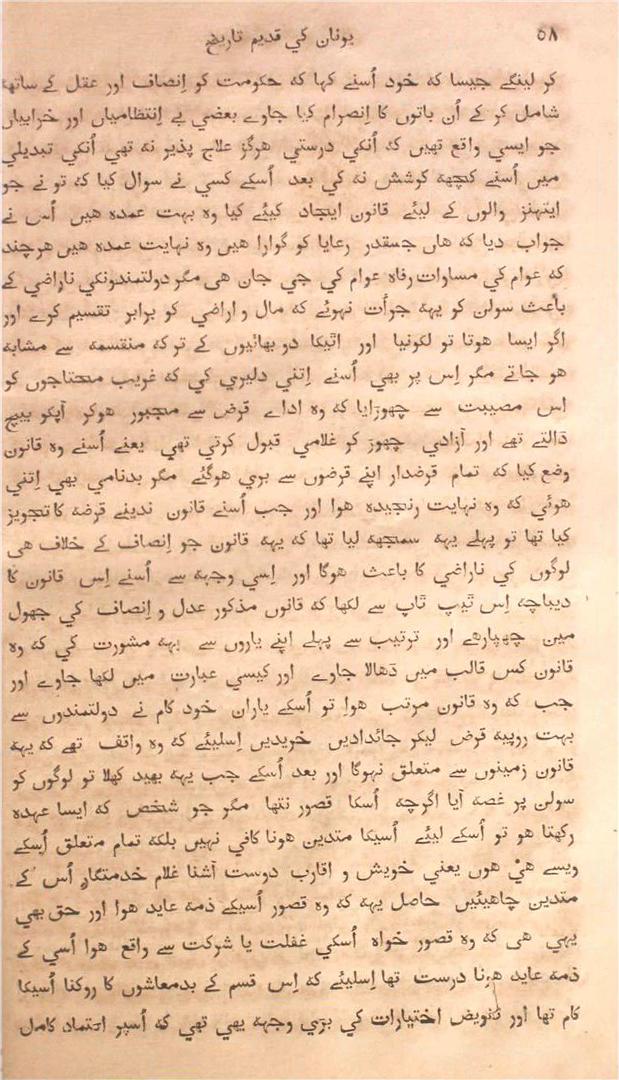 ٥٨ یونان کي قدیم تاریخ
کر لینگے جیسا که خود اُسنے کہا که حکومت کو اِنصاف اور عقل کے ساتھه
شامل کر کے اُن باتوں کا اِنصرام کیا جاوے بعضي بے اِنتظامیاں اور خرابیاں
جو ایسي واقع تھیں که اُنکي درستي هرگز علاج پذیر نه تھي اُنکي تبدیلي
میں اُسنے کچھه کوشش نه کي بعد اُسکے کسي نے سوال کیا که تو نے جو
ایتھنز والوں کے لیئے قانون ایجاد کیئے کیا وه بہت عمده هیں اُس نے
جواب دیا که هاں جسقدر رعایا کو گوارا هیں وه نہایت عمده هیں هرچند
که عوام کي مساوات رفاه عوام کي جي جان هی مگر دولتمندونکي ناراضي کے
باعث سولن کو یہه جراُت نہوئے که مال و اراضي کو برابر تقسیم کرے اور
اگر ایسا هوتا تو لکونیا اور اٹیکا دو بھائیوں کے ترکه منقسمه سے مشابه
هو جاتے مگر اِس پر بھي اُسنے اِتني دلیري کي که غریب محتاجوں کو
اس مصیبت سے چھوڑایا که وه اداے قرض سے مجبور هوکر آپکو بیچ
ڈالتے تھے اور آزادي چھوڑ کر غلامي قبول کرتي تھي یعنے اُسنے وه قانون
وضع کیا که تمام قرضدار اپنے قرضوں سے بري هوگئے مگر بدنامي بھي اِتني
هوئي که وه نہایت رنجیده هوا اور جب اُسنے قانون ندینے قرضه کا تجویز
کیا تھا تو پہلے یہه سمجھه لیا تھا که یہه قانون جو اِنصاف کے خلاف هی
لوگوں کي ناراضي کا باعث هوگا اور اِسي وجہه سے اُسنے اِس قانون کا
دیباچه اِس ٹیپ ٹاپ سے لکھا که قانوں مذکور عدل و اِنصاف کي جھول
میں چھپارهے اور ترتیب سے پہلے اپنے یاروں سے یہه مشورت کي که وه
قانون کس قالب میں ڈهالا جاوے اور کیسي عبارت میں لکھا جاوے اور
جب که وه قانون مرتب هوا تو اُسکے یاران خود کام نے دولتمندوں سے
بہت روپیه قرض لیکر جائدادیں خریدیں اِسلیئے که وه واقف تھے که یہه
قانون زمینوں سے متعلق نہوگا اور بعد اُسکے جب یہه بھید کھلا تو لوگوں کو
سولن پر غصه آیا اگرچه اُسکا قصور نتھا مگر جو شخص که ایسا عہده
رکھتا هو تو اُسکے لیئے اُسیکا متدین هونا کافي نہیں بلکه تمام متعلق اُسکے
ویسے هي هوں یعني خویش و اقارب دوست آشنا غلام خدمتگار اُس کے
متدین چاهیئیں حاصل یہه که وه قصور اُسیکے ذمه عاید هوا اور حق بھي
یہي هی که وه قصور خواه اُسکي غفلت یا شرکت سے واقع هوا اُسي کے
ذمه عاید هونا درست تھا اِسلیئے که اِس قسم کے بدمعاشوں کا روکنا اُسیکا
کام تھا اور تفویض اختیارات کي بڑي وجهه یهي تھي که اُسپر اعتماد کامل